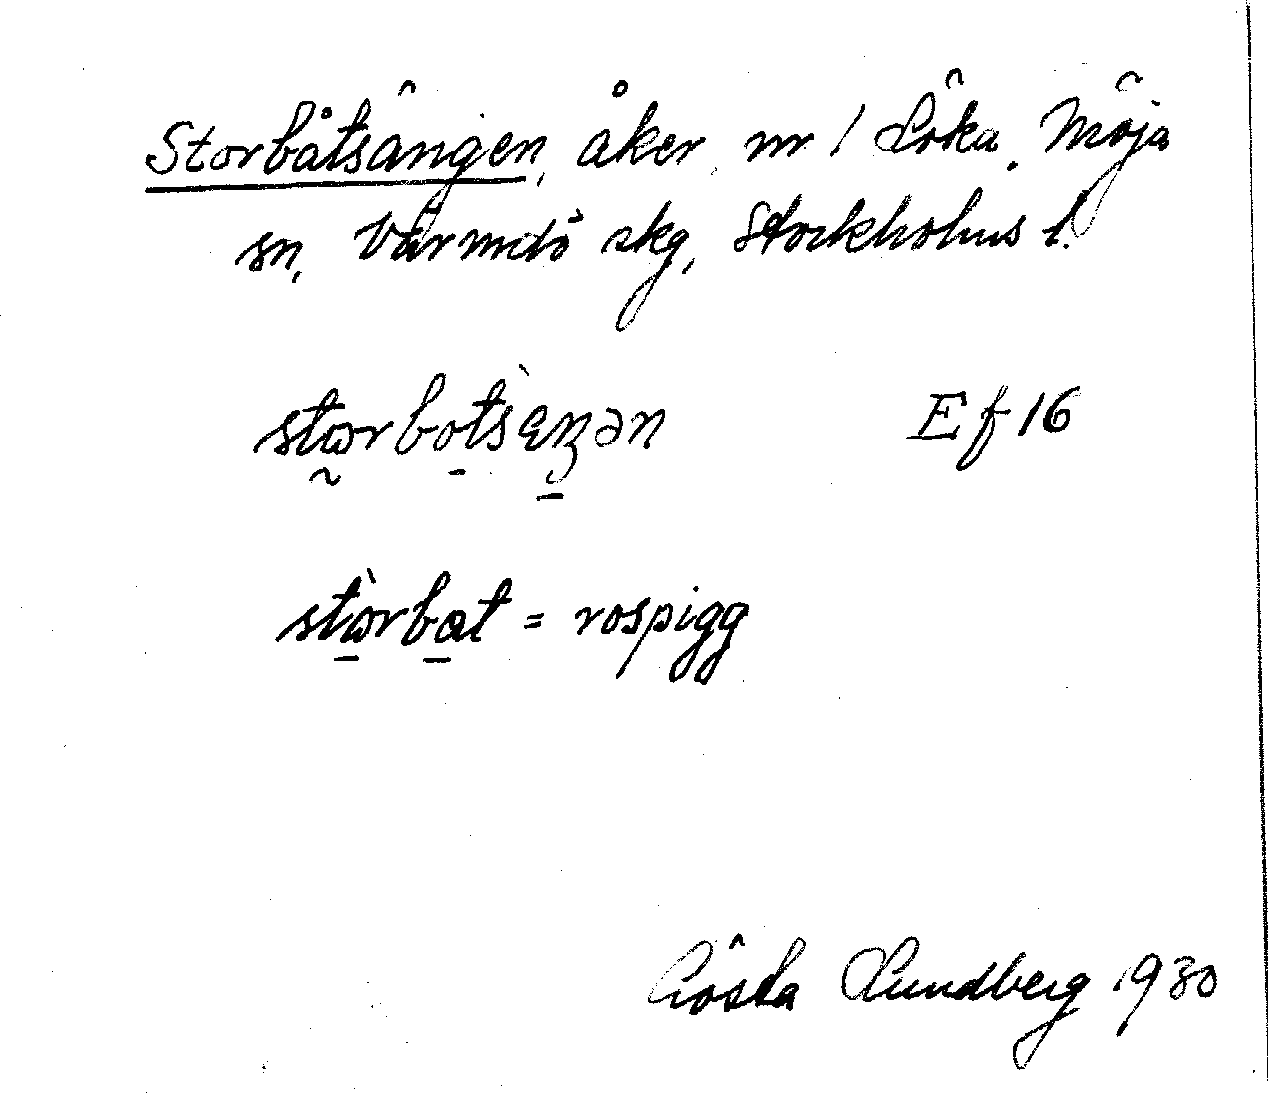 Storbåtsängen, åker, nr 1 Löka. Möja
sn, Värmdö skg, Stockholms l.
stωrbotsɛŋən Ef 16
stωrbat = rospigg
Gösta Lundberg 1930